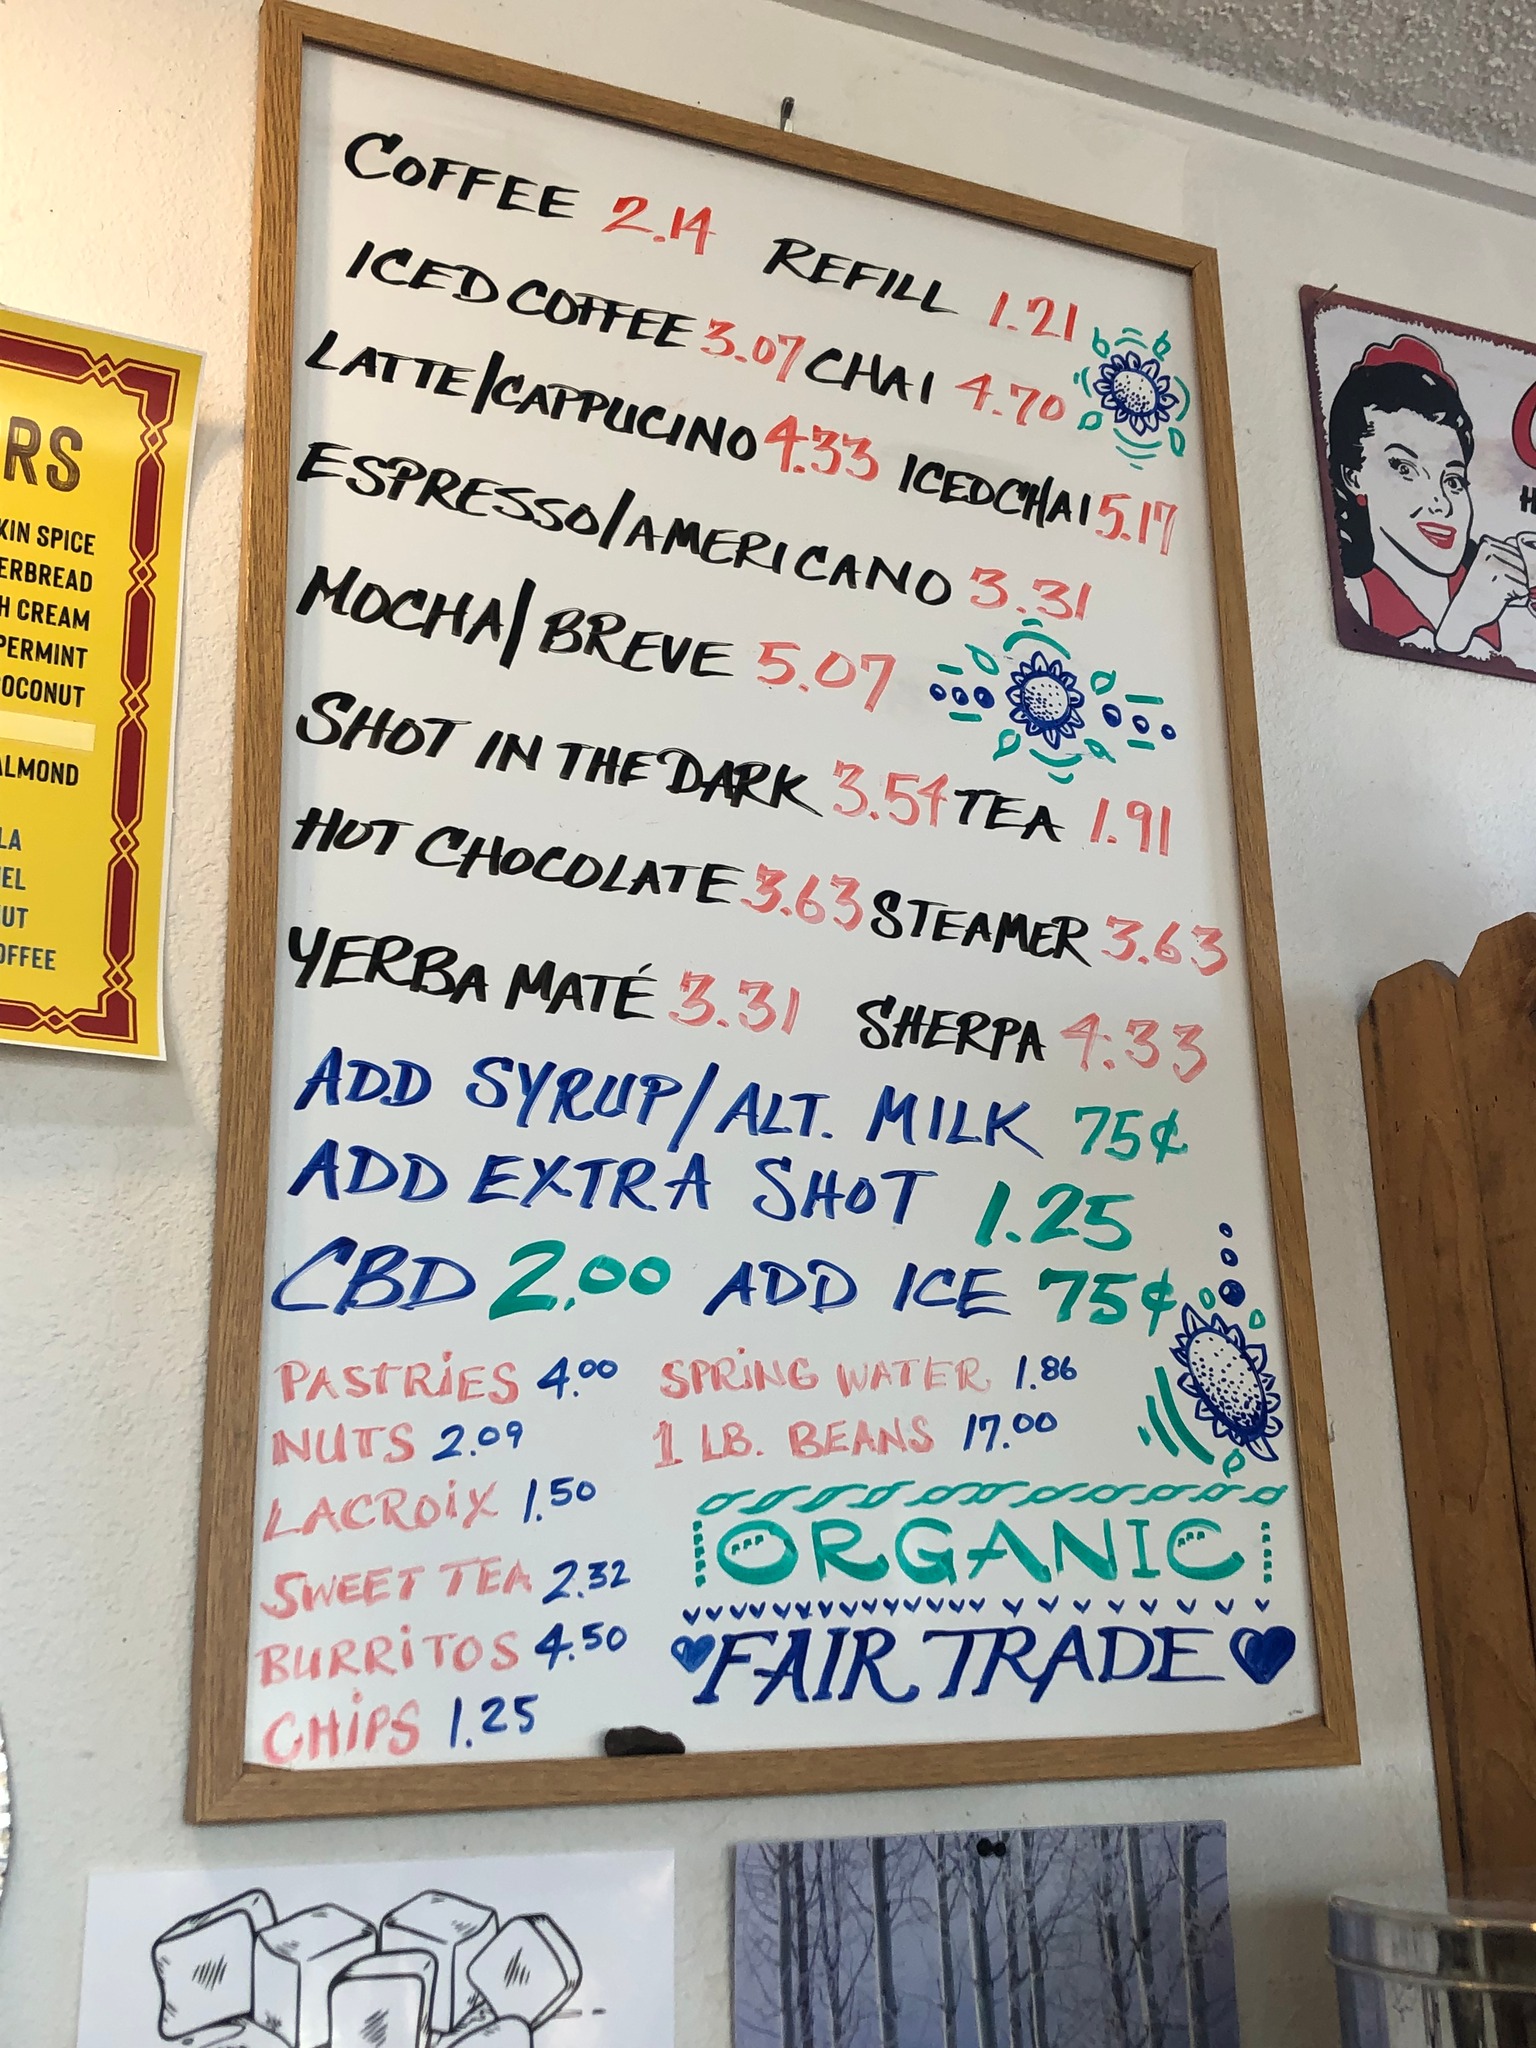 COFFEE 2.14 REFILL 1.21
ICED COFFEE 3.07 CHAI 4.70
LATTE/CAPPUCINO 4.33 ICED CHAI 5.17
ESPRESSO/AMERICANO 3.31
MOCHA/BREVE 5.07
SHOT IN THE DARK 3.54 TEA 1.91
HOT CHOCOLATE 3.63 STEAMER 3.63
YERBA MATÉ 3.31 SHERPA 4.33
ADD SYRUP/ALT. MILK 75¢
ADD EXTRA SHOT 1.25
CBD 2.00 ADD ICE 75¢
PASTRIES 4.00 SPRING WATER 1.86
NUTS 2.09 1 LB. BEANS 17.00
LACROIX 1.50
SWEET TEA 2.32
BURRITOS 4.50
CHIPS 1.25
ORGANIC
FAIR TRADE
RS
KIN SPICE
ERBREAD
H CREAM
PERMINT
COCONUT
ALMOND
LA
EL
UT
OFFEE